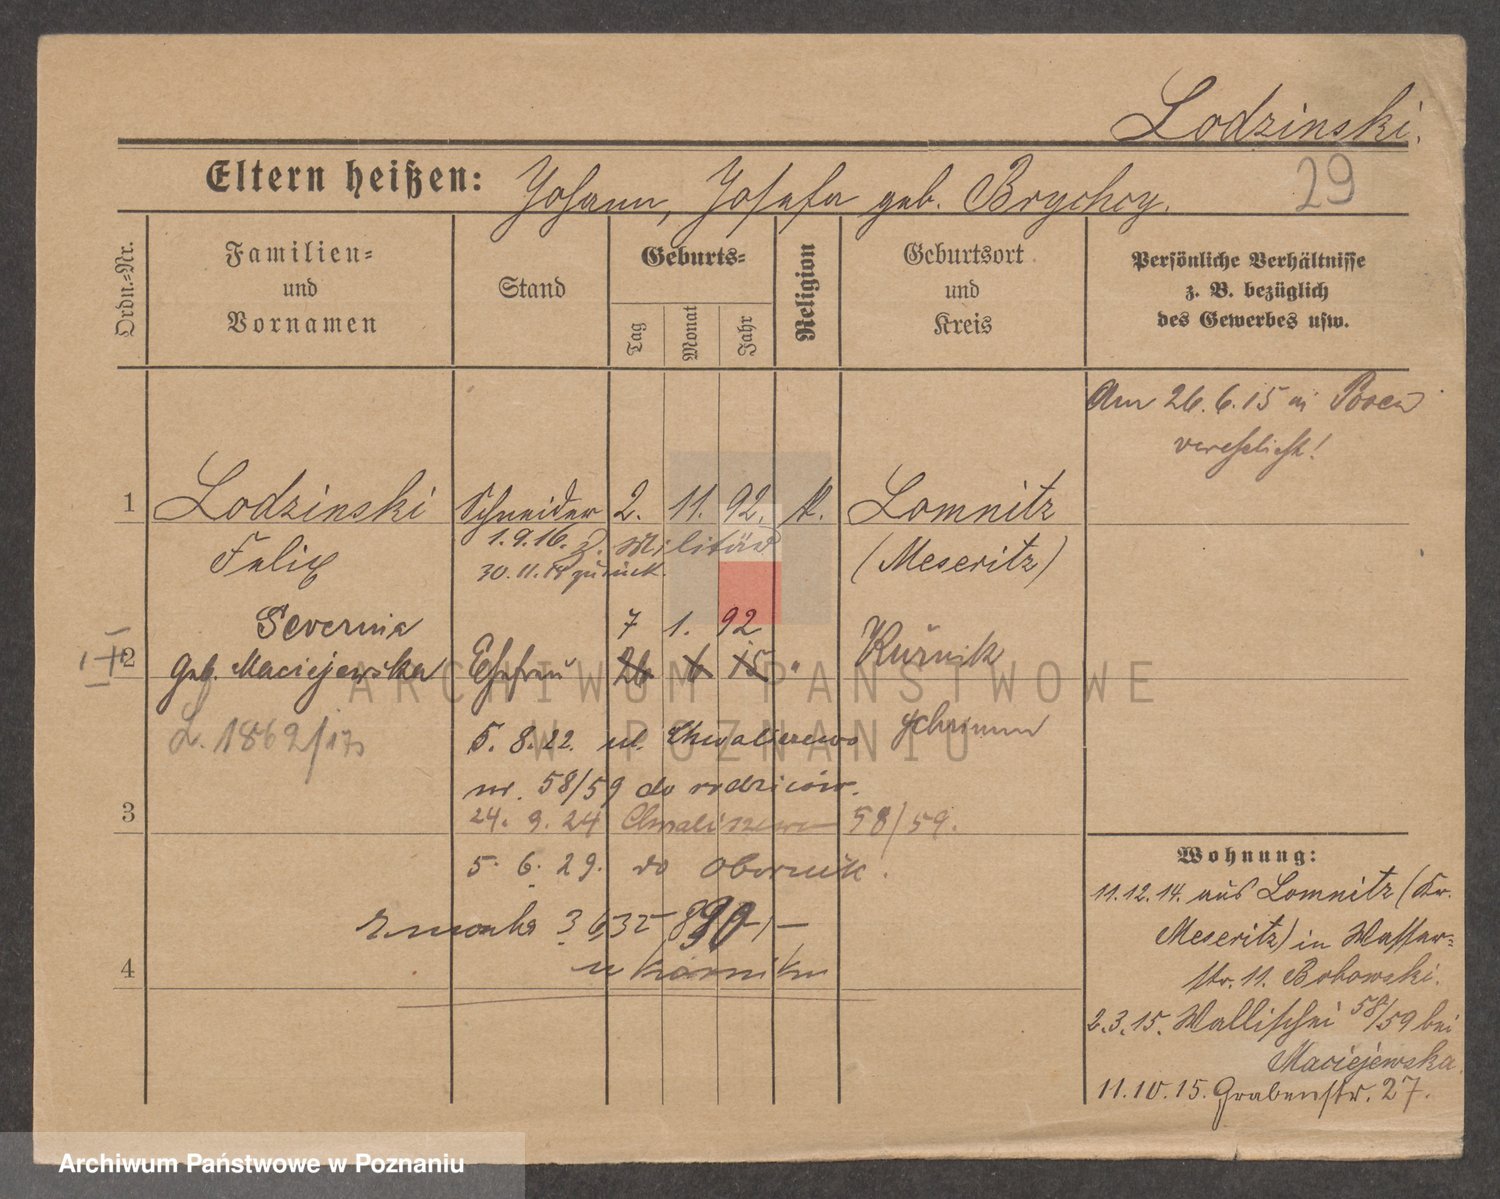 Lodzinski.
29
Eltern heißen: Johann, Josefa geb. Brychcy.
Ordn.=Nr.
Familien=
und
Vornamen
Stand
Geburts=
Tag
Monat
Jahr
Religion
Geburtsort
und
Kreis
Persönliche Verhältnisse
z. B. bezüglich
des Gewerbes usw.
Am 26.6.15 in Posen
verehelicht!
1 Lodzinski Schneider 2. 11. 92. k. Lomnitz
Felix 1.9.16. z. Militär (Meseritz)
30.11.18 zurück.
Severina 7 1. 92 Kurnik
2 geb. Maciejewska Ehefrau 26 6 15 "
L. 1862/173 Schrimm
5. 8. 22. ul. Chwaliszewo
nr. 58/59 do rodziców.
3 24. 9. 24 Chwaliszewo 58/59.
5. 6. 29. do Obornik.
3 6 32 890/-
4 w Kórniku
Wohnung:
11.12.14. aus Lomnitz (Kr.
Meseritz) in Wasser=
str. 11. Bobowski.
2.3.15. Wallischei 58/59 bei
Maciejewska.
11.10.15. Grabenstr. 27.
ARCHIWUM PAŃSTWOWE
W POZNANIU
Archiwum Państwowe w Poznaniu